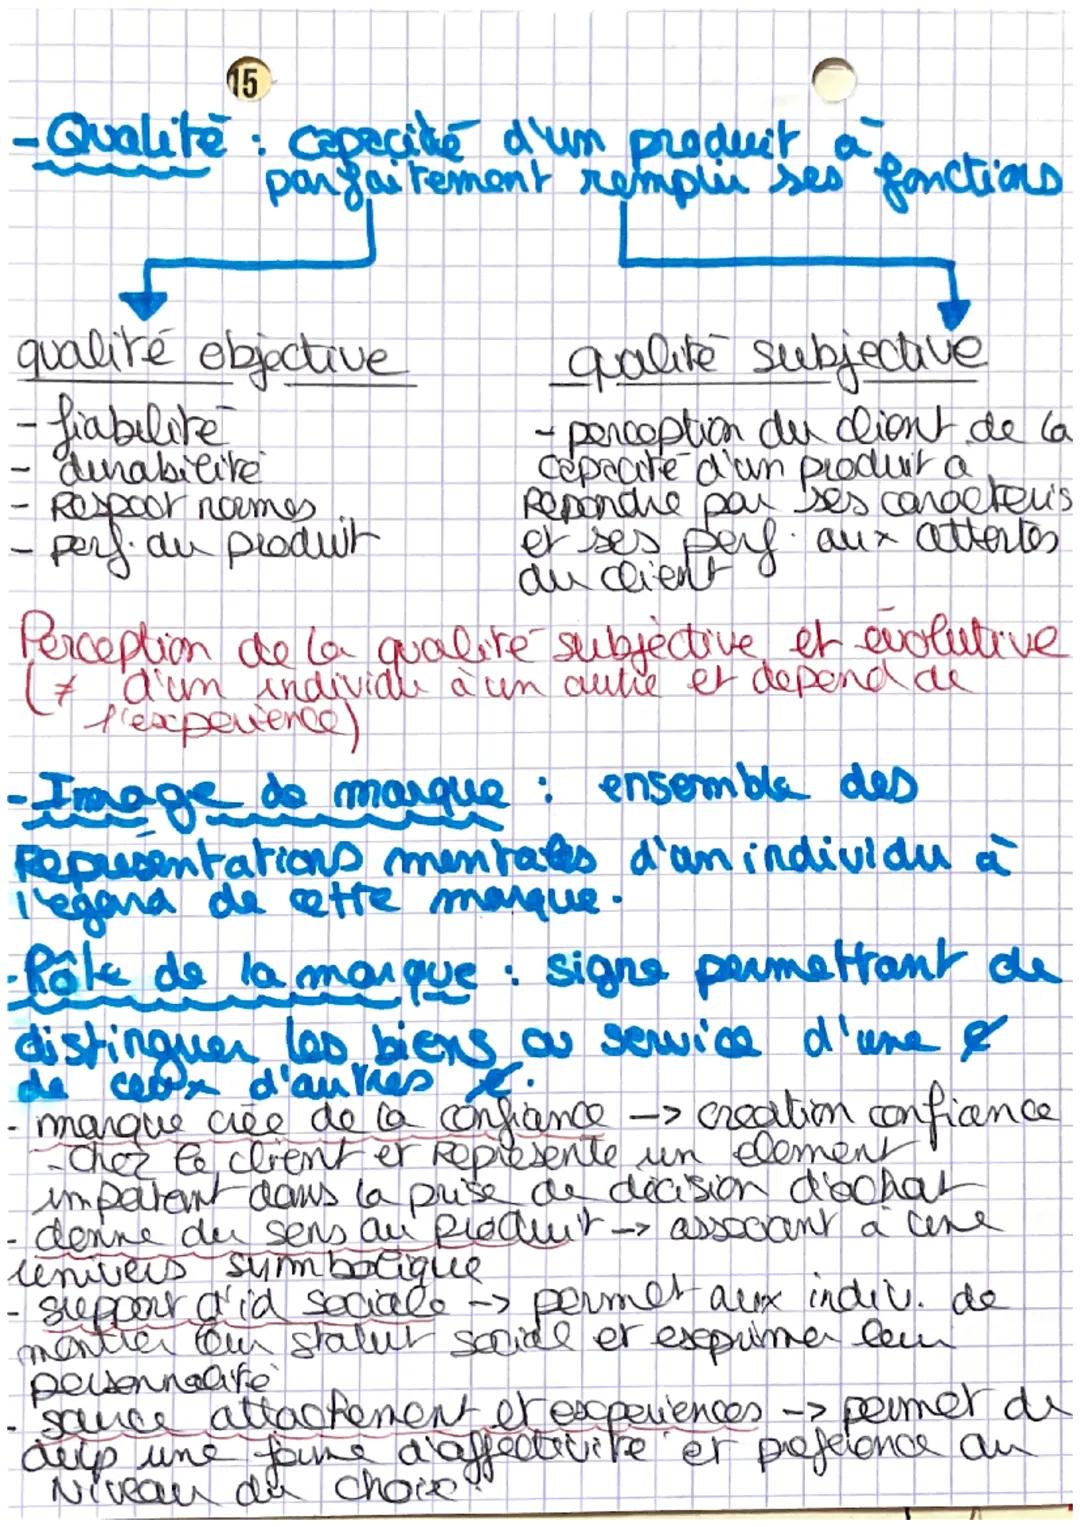 15
- Qualité : capacité d'un produit à
parfaitement remplir ses fonctions
qualité objective
- fiabilité
- durabilité
- Respect normes
- perf. du produit
qualité subjective
- perception du client de la
capacité d'un produit a
Répondre par ses caractéris
et ses perf. aux attentes
du client
Perception de la qualité subjective et évolutive
(≠ d'un individu à un autre et depend de
l'experience)
- Image de marque : ensemble des
Représentations mentales d'un individu à
l'egard de cette marque.
- Rôle de la marque : signe permettant de
distinguer les biens ou service d'une
de ceux d'autres
- marque crée de la confiance -> creation confiance
- Chez le client et Représente un element
important dans la prise de décision d'achat
- donne du sens au produit -> associant à une
univers symbolique
- support d'id sociale -> permet aux indiv. de
montrer leur statut social et exprimer leur
personnalité
- source attachement et experiences -> permet de
dvlp une forme d'affectivité et préférence au
Niveau du choix.